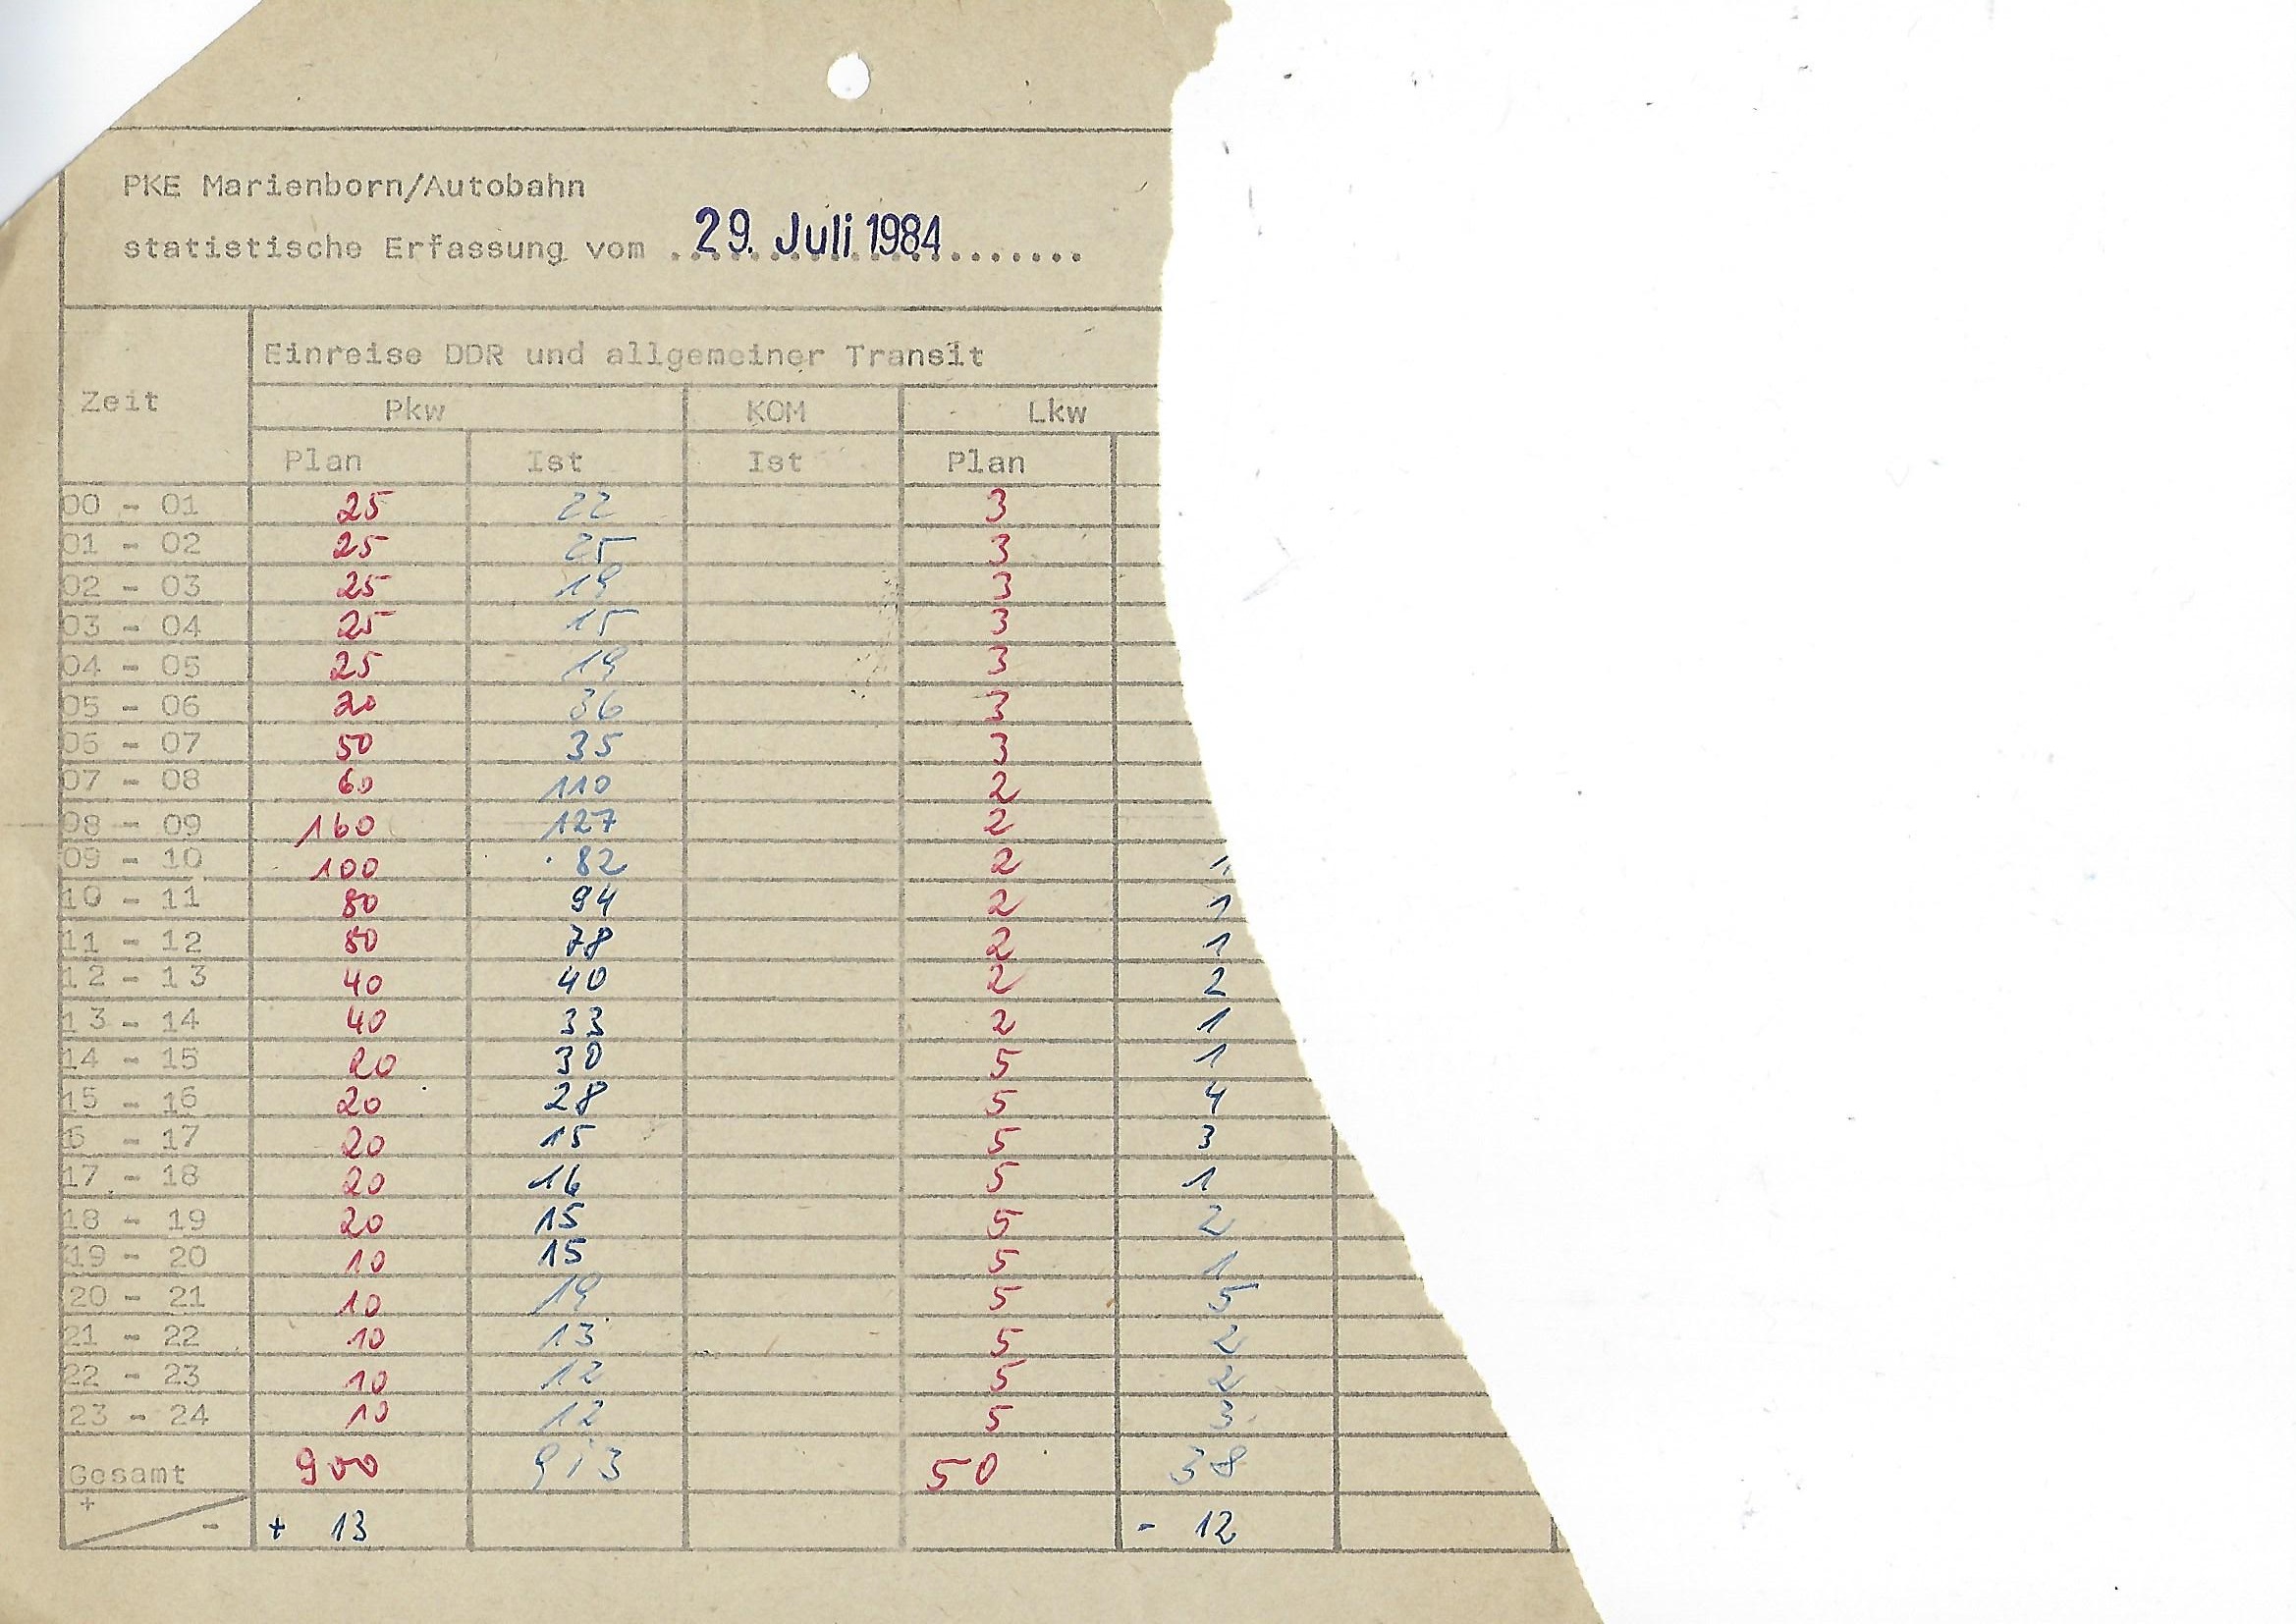 PKE Marienborn/Autobahn
statistische Erfassung vom ..29. Juli 1984.......
Zeit
Einreise DDR und allgemeiner Transit
Pkw KOM Lkw
Plan Ist Ist Plan
00 - 01 25 22 3
01 - 02 25 25 3
02 - 03 25 19 3
03 - 04 25 15 3
04 - 05 25 19 3
05 - 06 20 36 3
06 - 07 50 35 3
07 - 08 60 110 2
08 - 09 160 127 2
09 - 10 100 82 2 1
10 - 11 80 94 2 1
11 - 12 80 78 2 1
12 - 13 40 40 2 2
13 - 14 40 33 2 1
14 - 15 20 30 5 1
15 - 16 20 28 5 4
6 - 17 20 15 5 3
17 - 18 20 16 5 1
18 - 19 20 15 5 2
19 - 20 10 15 5 1
20 - 21 10 19 5 5
21 - 22 10 13 5 2
22 - 23 10 12 5 2
23 - 24 10 12 5 3
Gesamt 900 913 50 38
+ - + 13 - 12